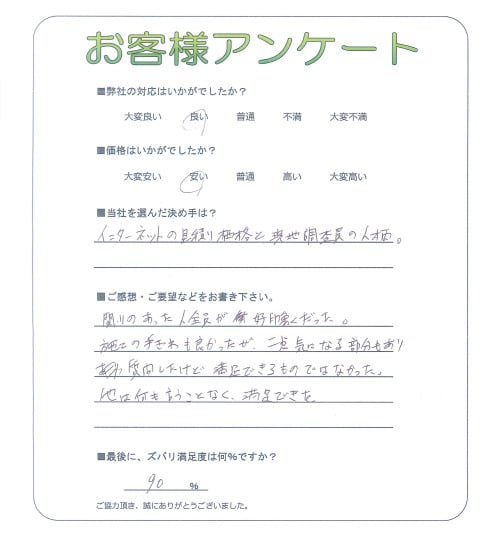 お客様アンケート
■弊社の対応はいかがでしたか？
大変良い 良い 普通 不満 大変不満
■価格はいかがでしたか？
大変安い 安い 普通 高い 大変高い
■当社を選んだ決め手は？
インターネットの見積り価格と現地調査員の人柄。
■ご感想・ご要望などをお書き下さい。
関りのあった人全員が好印象だった。
施工の手ぎわも良かったが、二点気になる部分もあり
質問したけど満足できるものではなかった。
他は何も言うことなく、満足できた
■最後に、ズバリ満足度は何%ですか？
90 %
ご協力頂き、誠にありがとうございました。